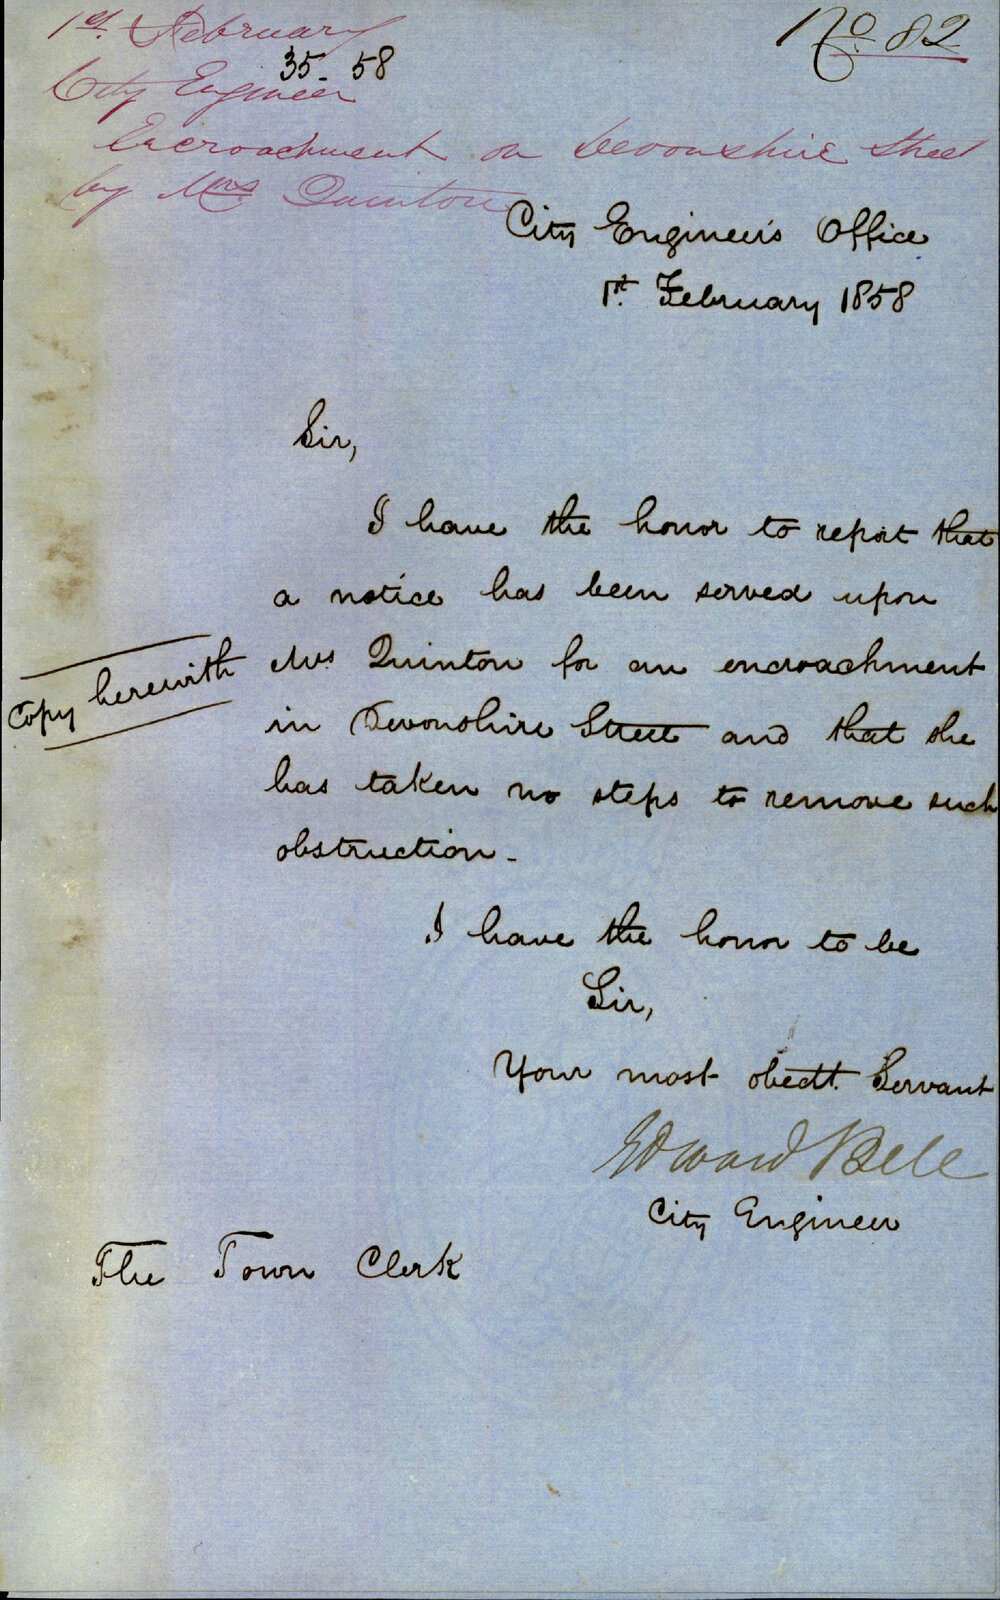 1st. February
No. 82
35-58
City Engineer
Encroachment on Devonshire Street
by Mrs. Quinton
City Engineer's Office
1st. February 1858
Sir,
I have the honor to report that
a notice has been served upon
Copy herewith
Mrs Quinton for an encroachment
in Devonshire Street and that she
has taken no steps to remove such
obstruction -
I have the honor to be
Sir,
Your most obedtt. Servant
Edward Bell
City Engineer
The Town Clerk